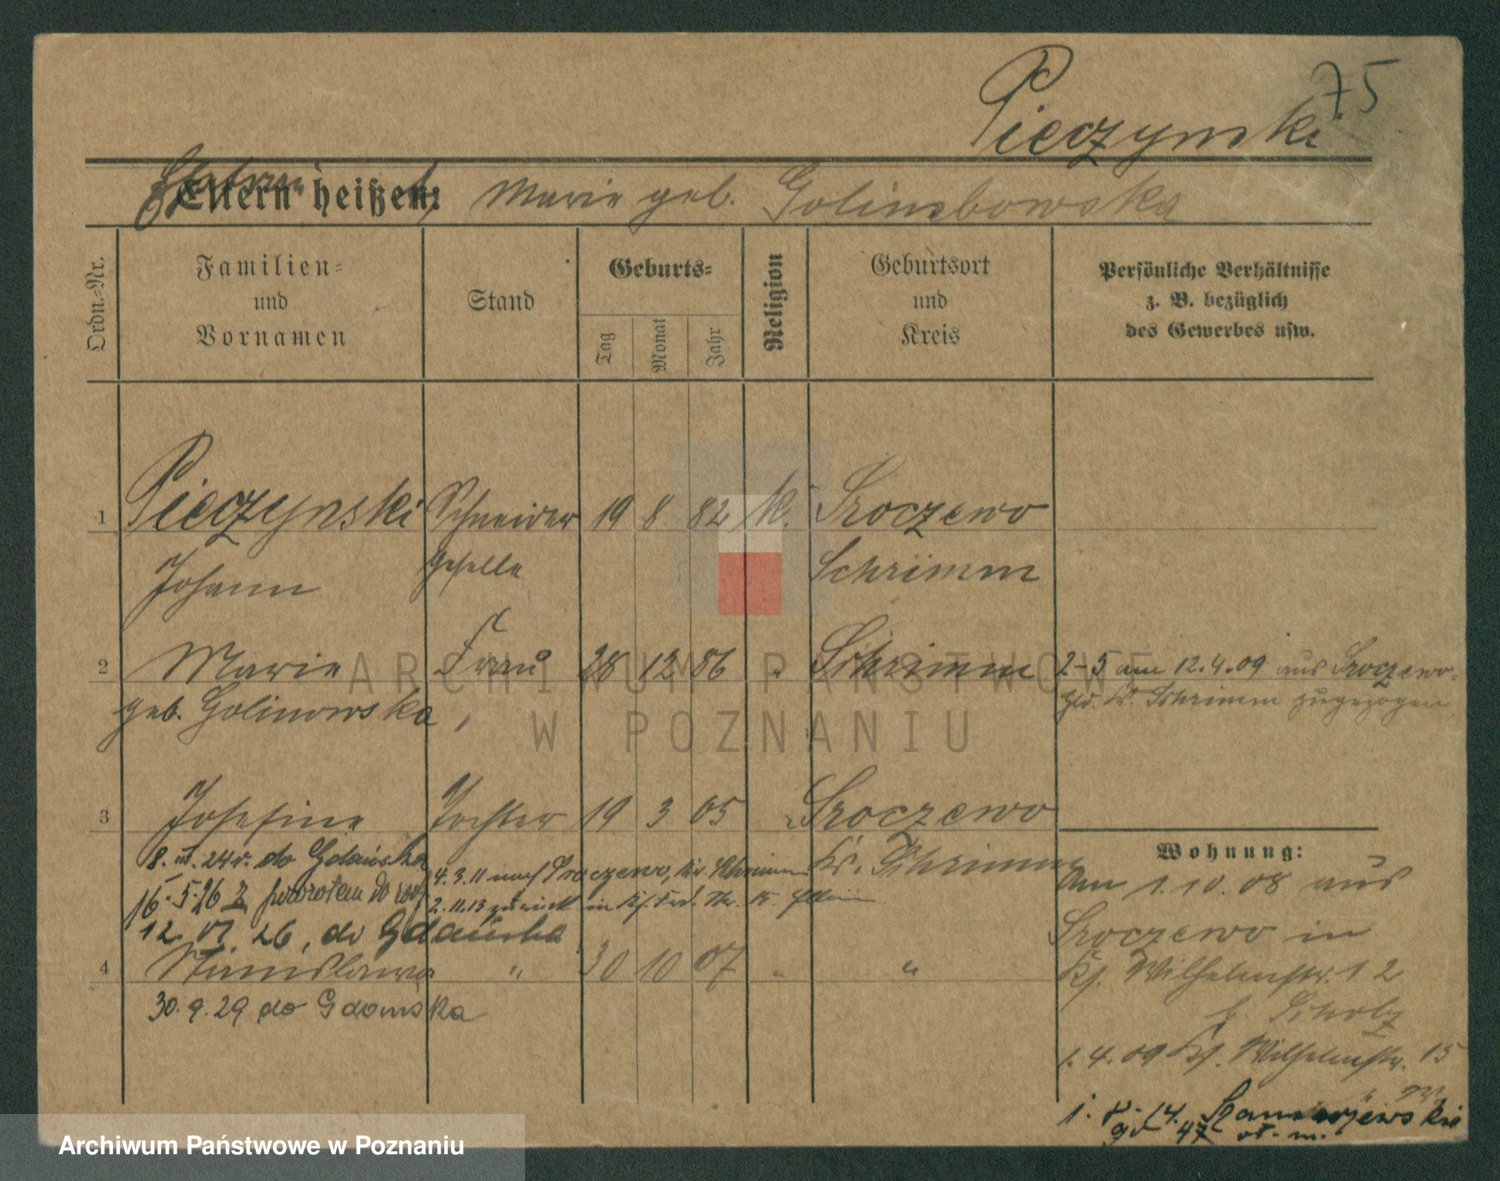 75
Pieczynski
Eltern heißen: Marie geb. Golimbowska
Ordn.-Nr.
Familien- und Vornamen
Stand
Geburts-
Tag
Monat
Jahr
Religion
Geburtsort und Kreis
Persönliche Verhältnisse z. B. bezüglich des Gewerbes usw.
1 Pieczynski Schneider 19 8 82 k. Sroczewo
Johann Geselle Schrimm
2 Marie Frau 28 12 86 " Schrimm 2-5 am 12.4.09 aus Sroczewo
geb. Golinowska, Schrimm zugezogen
3 Josefine Tochter 19 3 05 " Sroczewo
Kr. Schrimm
Wohnung:
24 r. do Gdańska
4.3.11 nach Sroczewo, Kr. Schrimm
Am 1.10.08 aus
16.5.26 z powrotem do
2.11.13 zurück in
12. 07. 26, do Gdańska
Sroczewo in
4 Stanislawa " 30 10 07 " "
Wilhelmstr. 12
30.9.29 do Gdańska
b. Scholz
1.4.09 Wilhelmstr. 15
ARCHIWUM PAŃSTWOWE
W POZNANIU
Archiwum Państwowe w Poznaniu